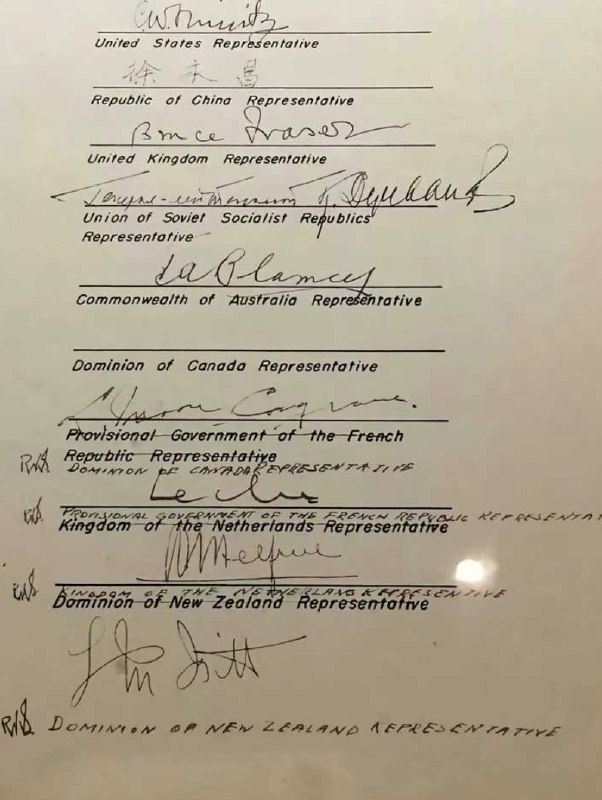 C.W. Nimitz
United States Representative
徐永昌
Republic of China Representative
Bruce Fraser
United Kingdom Representative
Union of Soviet Socialist Republics
Representative
T A Blamey
Commonwealth of Australia Representative
Dominion of Canada Representative
L. Moore Cosgrave.
Provisional Government of the French
Republic Representative
DOMINION OF CANADA REPRESENTATIVE
PROVISIONAL GOVERNMENT OF THE FRENCH REPUBLIC REPRESENTAT
Kingdom of the Netherlands Representative
KINGDOM OF THE
Dominion of New Zealand Representative
L M Isitt
DOMINION OF NEW ZEALAND REPRESENTATIVE